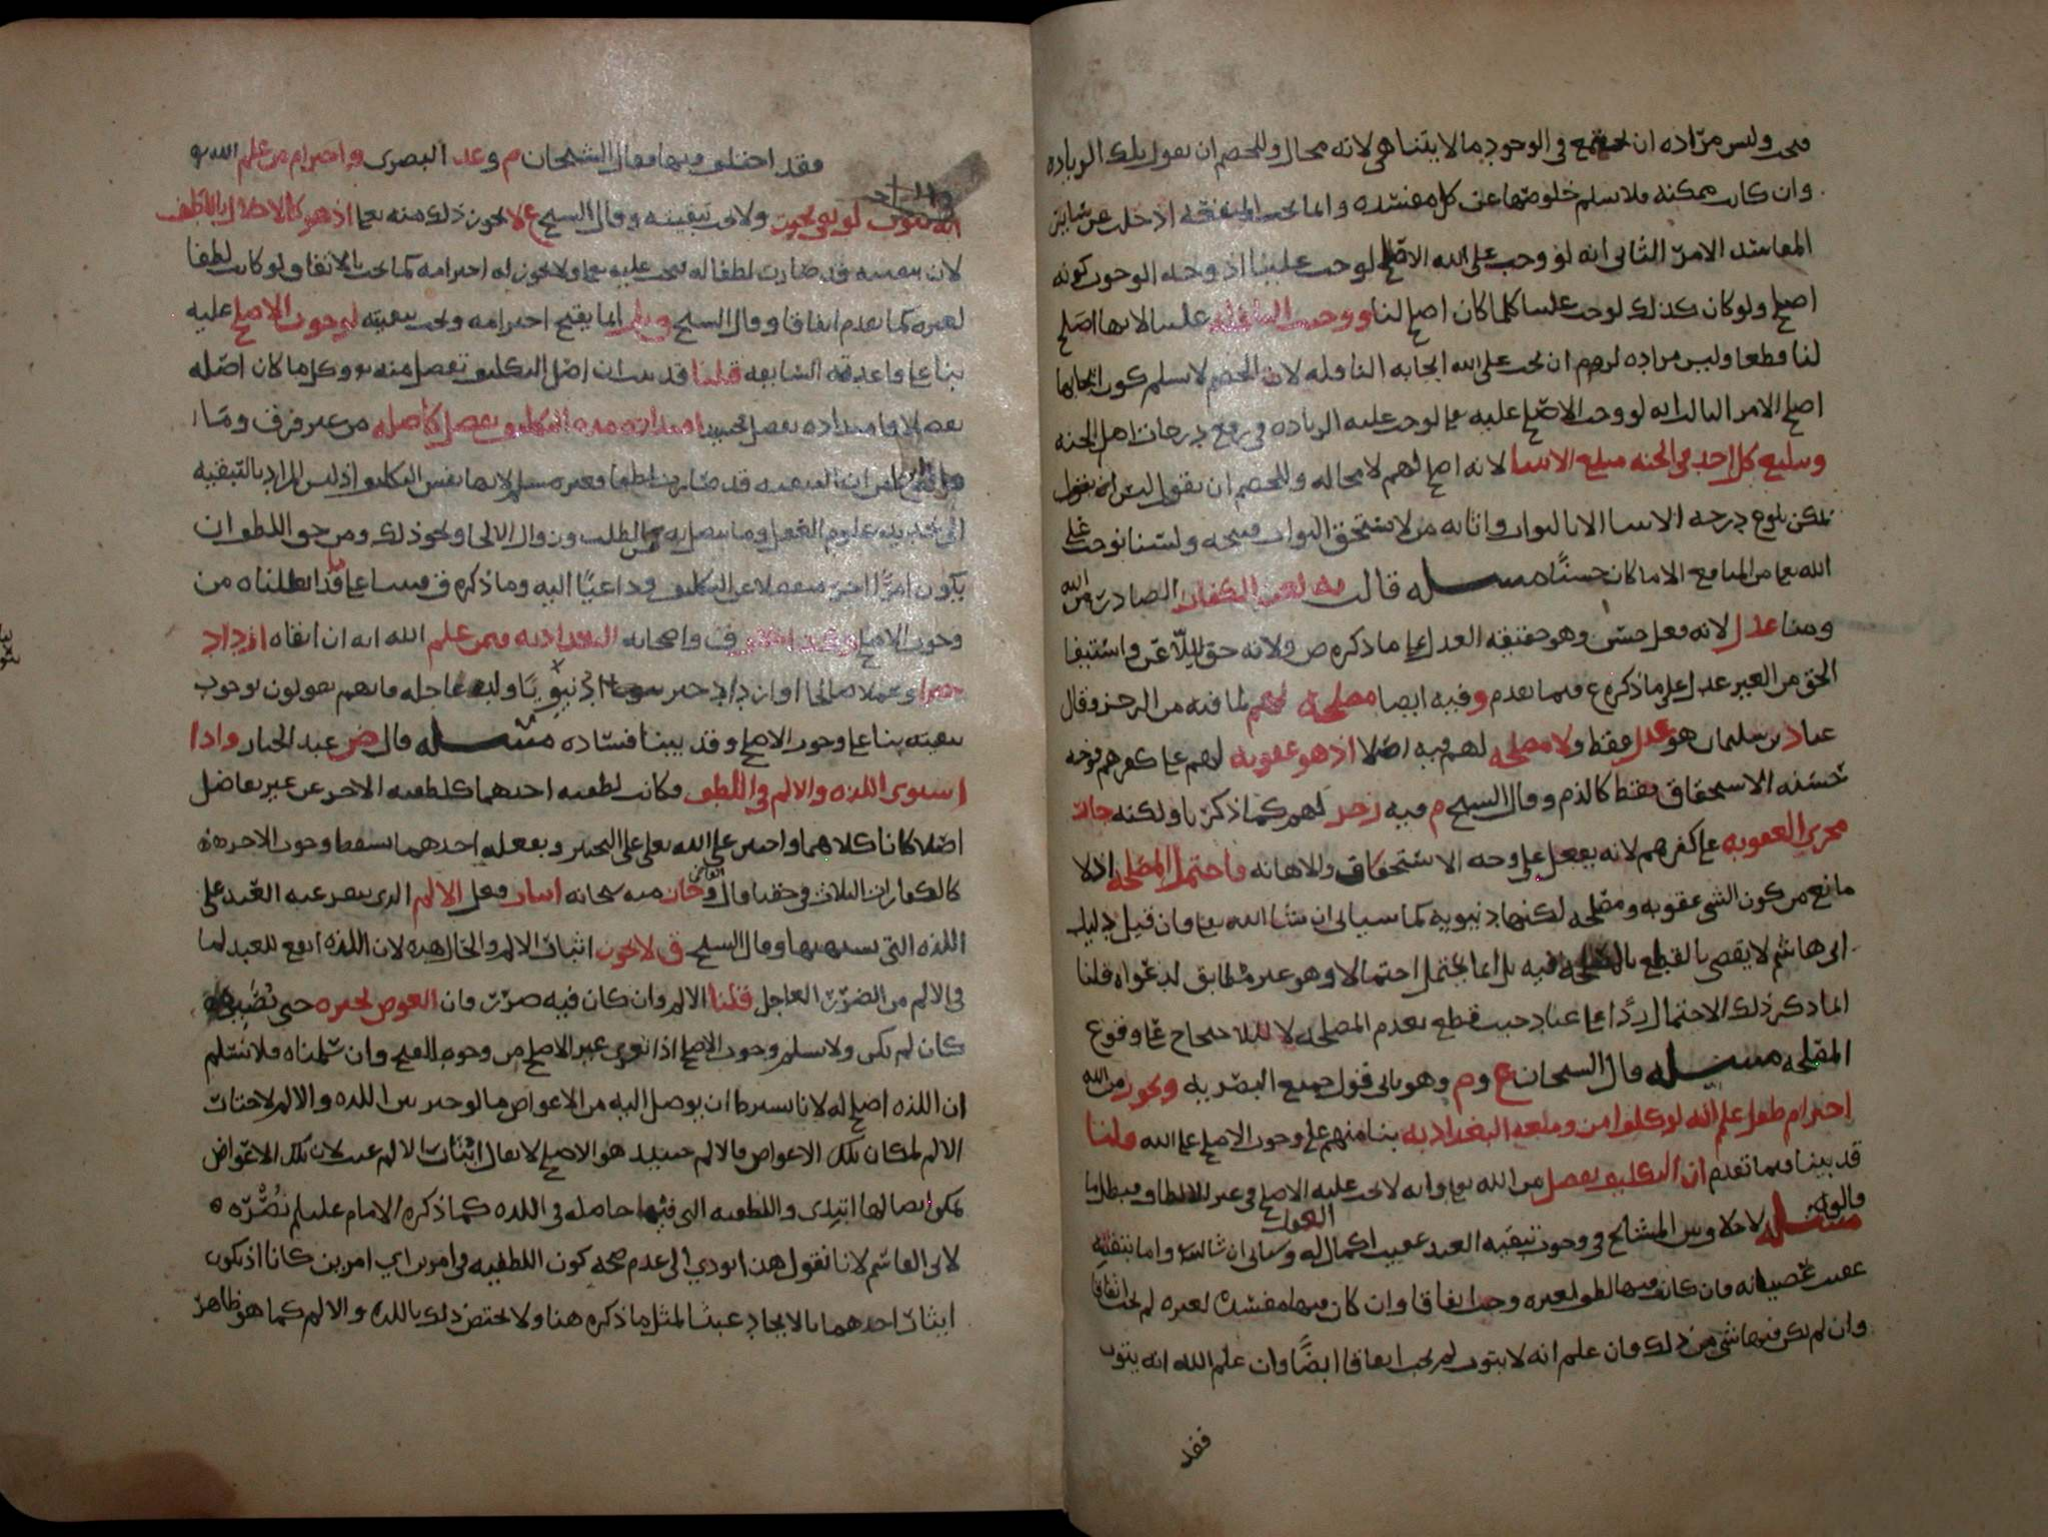 فيجب وليس مراده ان يجتمع في الوجود ما لا يتناهى لانه محال وللخصم ان يقول تلك الزياده
وان كانت ممكنه فلا نسلم خلوصها عن كل مفسده وانما تجب المنفعه اذ خلت عن شايبه
المفاسد الامر الثاني انه لو وجب على الله الاصلح لوجب علينا اذ وجه الوجوب كونه
اصلح ولو كان كذلك لوجب علينا كلما كان اصلح لنا ووجبت النافله علينا لانها اصلح
لنا قطعا وليس مراده لزوم ان يجب على الله ايجابه النافله لان الخصم لا يسلم كون ايجابها
اصلح الامر الثالث انه لو وجب الاصلح عليه تعالى لوجب عليه الزياده في رفع درجات اهل الجنه
وتبليغ كل احد في الجنه مبلغ الانبيا لانه اصلح لهم لا محاله وللخصم ان يقول ليس
يمكن بلوغ درجه الانبيا الا بالثواب واثابه من لا يستحق الثواب قبيحه ولسنا نوجب على
الله تعالى من المنافع الا ما كان حسنًا مسئله قال لعن الكفار الصادر من الله
ومنا عدل لانه فعل حسن وهو حقيقه العدل على ما ذكره ص ولانه حق لله عز واستيفا
الحق من الغير عدل على ما ذكره ع فيما تقدم وفيه ايضا مصلحه لهم لما فيه من الزجر وقال
عباد بن سليمان هو عدل فقط ولا مصلحه لهم فيه اصلا اذ هو عقوبه لهم على كفرهم فوجه
حسنه الاستحقاق فقط كالذم وقال الشيخ م فيه زجر لهم كما ذكرنا ولكنه جار
مجرى العقوبه على كفرهم لانه يفعل على وجه الاستحقاق والاهانه فاحتمل المصلحه اذ لا
مانع من كون الشي عقوبه ومصلحه لكنها دنيويه كما سياتي ان شا الله تعالى فان قيل دليل
ابي هاشم لا يقضي بالقطع بالمصلحه فيه بل انما يحتمل احتمالا وهو غير مطابق لدعواه قلنا
انما ذكر ذلك الاحتمال ردًا على عباد حيث قطع بعدم المصلحه لا للاحتجاج على وقوع
المصلحه مسئله قال الشيخان ع وم وهو ياتي قول جميع البصريه ويجوز من الله
اخترام طفل علم الله لو كلف امن ومنعه البغداديه بنا منهم على وجوب الاصلح على الله قلنا
قد بينا فيما تقدم ان التكليف تفضل من الله تعالى وانه لا يجب عليه الاصلح في غير الالطاف فبطل ما
قالوا
مسئله لا خلاف بين المشايخ في وجوب تبقيه العبد عقيب اكمال العقول له وسياتي ان شا الله واما تبقيته
عقيب عصيانه فان كان فيها لطف لغيره وجبت اتفاقا وان كان فيها مفسده لغيره لم تجب اتفاقا
وان لم يكن فيها شي من ذلك فان علم انه لا يتوب لم يجب اتفاقا ايضًا وان علم الله انه يتوب
فقد
فقد اختلف فيها فقال الشيخان م وعبد البصري واخترام من علم الله
انه يتوب لو بقي يجوز ولا يجب تبقيته وقال الشيخ ع لا يجوز ذلك منه تعالى اذ هو كالاخلال باللطف
لان تبقيته قد صارت لطفا له فيجب عليه تعالى ولا يجوز له اخترامه كما يجب الابقا ولو كانت لطفا
لغيره كما تقدم اتفاقا وقال الشيخ انما يقبح اخترامه وتجب تبقيته لوجوب الاصلح عليه
بنا على قاعدته السابقه قلنا قد ثبت ان اصل التكليف تفضل منه وكل ما كان اصله
تفضلا فامتداده تفضل فحينئذ امتداد مده التكليف تفضل كاصله من غير فرق وما
ان التبقيه قد صارت لطفا فغير مسلم لانها نفس التكليف اذ ليس المراد بالتبقيه
الى تجديد علوم العقل وما يتصل به من الطلب وزوال الالجا ونحو ذلك ومن حق اللطف ان
يكون امرًا اخر منفصلا عن التكليف وداعيًا اليه وما ذكره ق فبنا على ما قد ابطلناه من
وجوب الاصلح ف واصحابه البغداديه فيمن علم الله انه ان ابقاه ازداد
خيرا وعملا صالحا او ازداد خير دنيويًا ولذه عاجله فانهم يقولون بوجوب
تبقيته بنا على وجوب الاصلح وقد بينا فساده مسئله قال ض عبد الجبار واذا
استوى اللذه والالم في اللطف فكانت لطفيه احدهما كلطفيه الاخر من غير تفاضل
اصلا كانا كلاهما واجبين على الله تعالى على التخيير وبفعله احدهما يسقط وجوب الاخر
كالكفارات الثلاث في حقنا قال القاضي وجاز منه سبحانه ايثار فعل الالم الذي ينفر عنه العبد على
اللذه التي يشتهيها وقال الشيخ ق لا يجوز ايثار الالم والحال هذه لان اللذه انفع للعبد لما
في الالم من الضرر العاجل قلنا الالم وان كان فيه ضرر فان العوض يجبره حتى يصير
كان لم يكن ولا نسلم وجوب الاصلح اذا تعرى غير الاصلح من وجوه القبح وان سلمناه فلا نسلم
ان اللذه اصلح له لانا نشترط ان يوصل اليه من الاعواض ما لو خير بين اللذه والالم لاختار
الالم لمكان تلك الاعواض فالالم حينئذ هو الاصلح لا يقال ايثار الالم عبث لان تلك الاعواض
يمكن ايصالها ابتدى واللطفيه التي فيها حاصله في اللذه كما ذكره الامام عليلم نصره
لابي القاسم لانا نقول هذا يودي الى عدم صحه كون اللطفيه في امرين اي امرين كانا اذ يكون
ايثار احدهما بالايجاد عبثا لمثل ما ذكره هنا ولا يختص ذلك باللذه والالم كما هو ظاهر